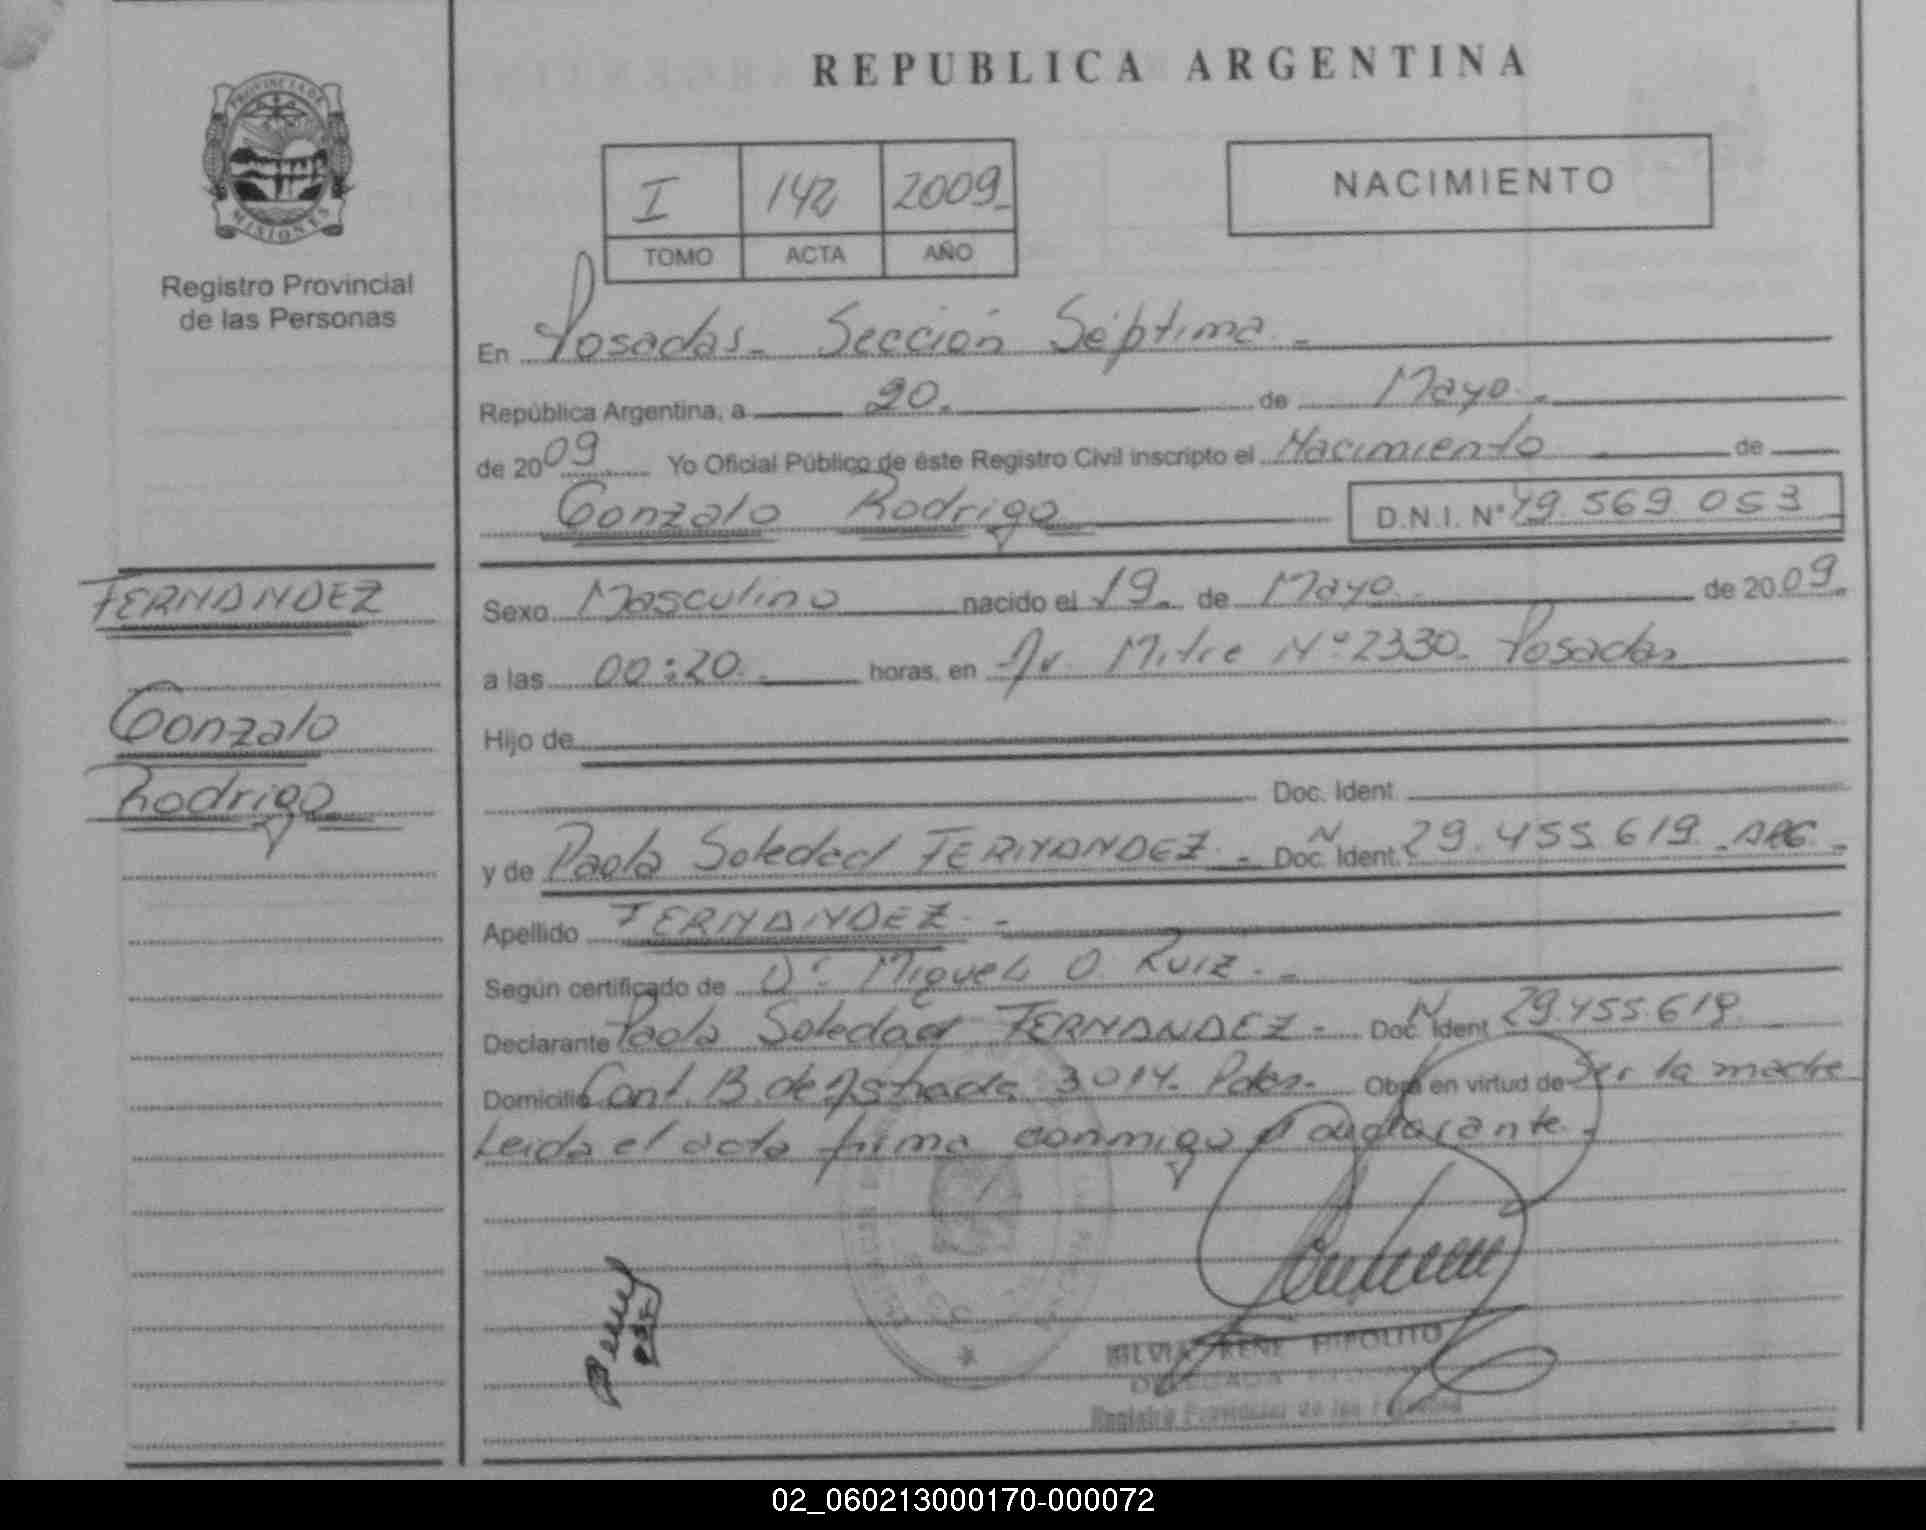 REPUBLICA ARGENTINA
PROVINCIA DE
MISIONES
Registro Provincial
de las Personas
I 142 2009
TOMO ACTA AÑO
NACIMIENTO
En Posadas - Sección Séptima -
República Argentina, a 20 de Mayo
de 2009 Yo Oficial Público de éste Registro Civil inscripto el Nacimiento de
Gonzalo Rodrigo D.N.I. Nº 49 569 053
FERNANDEZ
Gonzalo
Rodrigo
Sexo Masculino nacido el 19 de Mayo de 2009
a las 00:20 horas, en Av Mitre Nº 2330 - Posadas
Hijo de
Doc. Ident.
y de Paola Soledad FERNANDEZ - Doc. Ident. N 29.455.619 - ARG -
Apellido FERNANDEZ -
Según certificado de Dr. Miguel O Ruiz -
Declarante Paola Soledad FERNANDEZ - Doc. Ident N 29.455.619
Domicilio Cont. B. de Estrada 3014 - Pdas - Obra en virtud de Ser la madre
Leída el acta firma conmigo
SILVIA IRENE HIPOLITO
DELEGADA
Registro Provincial de las Personas
02_060213000170-000072